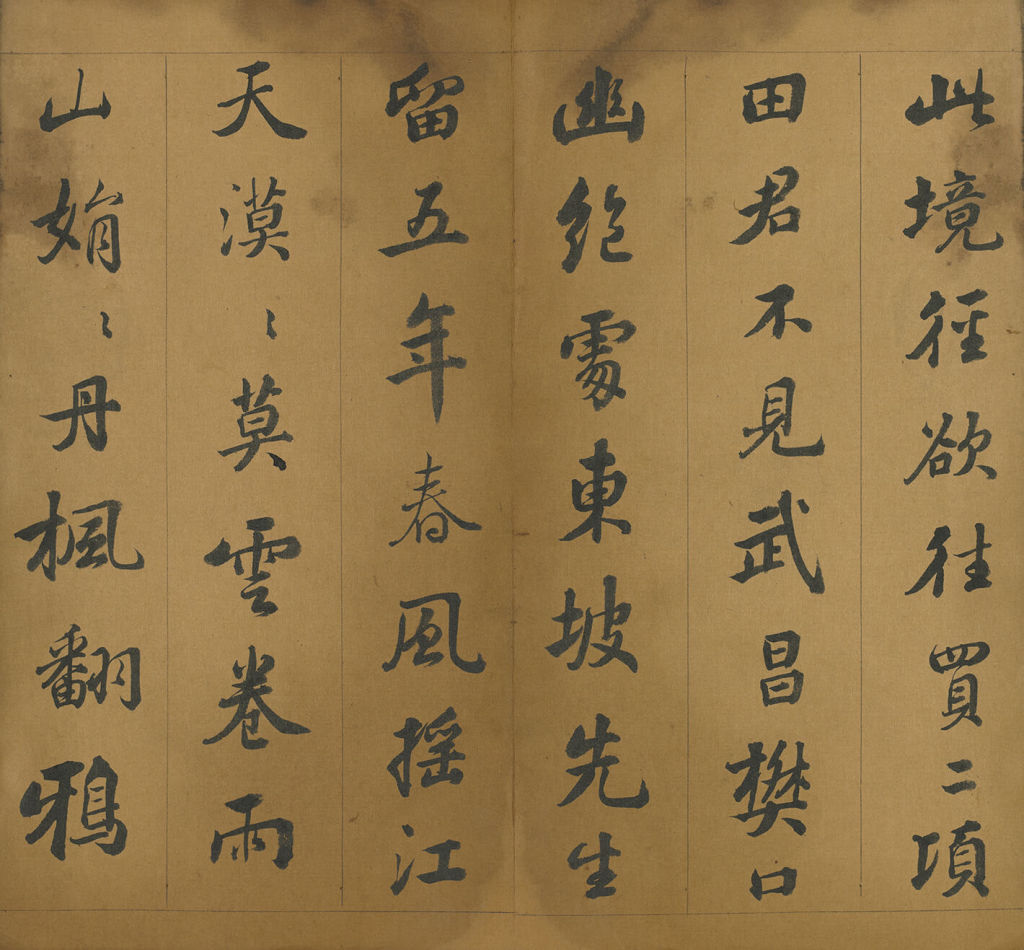 此境徑欲往買二頃
田君不見武昌樊口
幽絕處東坡先生
留五年春風搖江
天漠〻莫雲卷雨
山娟〻丹楓翻鴉